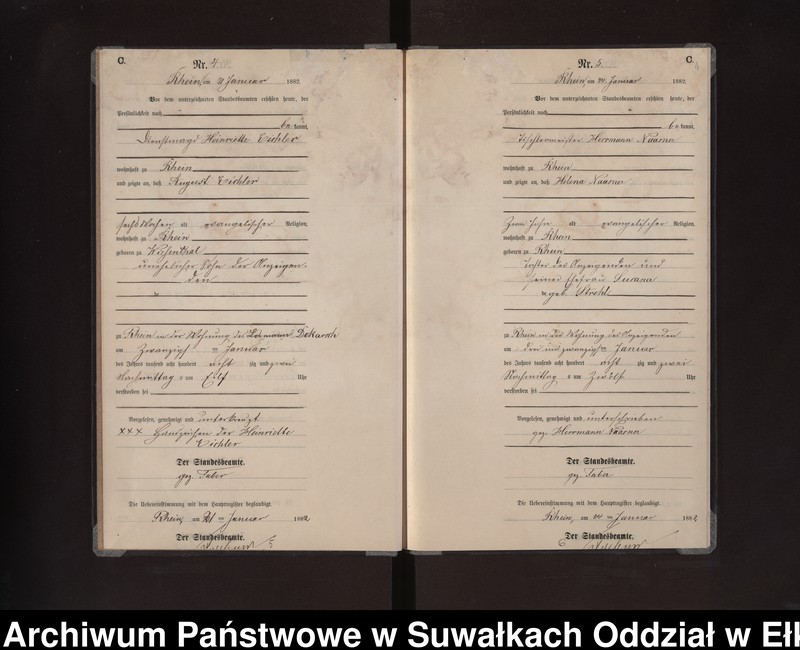 C.
Nr. 4
Rhein, am 21 Januar 1882.
Vor dem unterzeichneten Standesbeamten erschien heute, der
Persönlichkeit nach
be kannt,
Dienstmagd Heinriette Eichler
wohnhaft zu Rhein
und zeigte an, daß August Eichler
sechs Wochen alt evangelischer Religion,
wohnhaft zu Rhein
geboren zu
unehelicher Sohn der Anzeigen-
den
de
zu Rhein in der Wohnung des Dekarsch
am zwanzigsten Januar
des Jahres tausend acht hundert acht zig und zwei
Nachmittag s um Elf Uhr
verstorben sei
Vorgelesen, genehmigt und unterkreuzt
XXX Handzeichen der Heinriette
Eichler
Der Standesbeamte.
gez. Faber
Die Uebereinstimmung mit dem Hauptregister beglaubigt.
Rhein, am 21 ten Januar 1882
Der Standesbeamte.
C.
Nr. 5
Rhein, am 24. Januar 1882.
Vor dem unterzeichneten Standesbeamten erschien heute, der
Persönlichkeit nach
be kannt,
Tischlermeister Herrmann
wohnhaft zu Rhein
und zeigte an, daß Helena
alt evangelischer Religion,
wohnhaft zu Rhein
geboren zu Rhein
Tochter des Anzeigenden und
seiner Ehefrau Susana
de geb.
zu Rhein in der Wohnung des Anzeigenden
am drei und zwanzigsten Januar
des Jahres tausend acht hundert acht zig und zwei
Nachmittag s um Zwölf Uhr
verstorben sei
Vorgelesen, genehmigt und unterschrieben
gez. Herrmann
Der Standesbeamte.
gez. Faber
Die Uebereinstimmung mit dem Hauptregister beglaubigt.
Rhein, am 24 ten Januar 1882
Der Standesbeamte.
Archiwum Państwowe w Suwałkach Oddział w Ełk